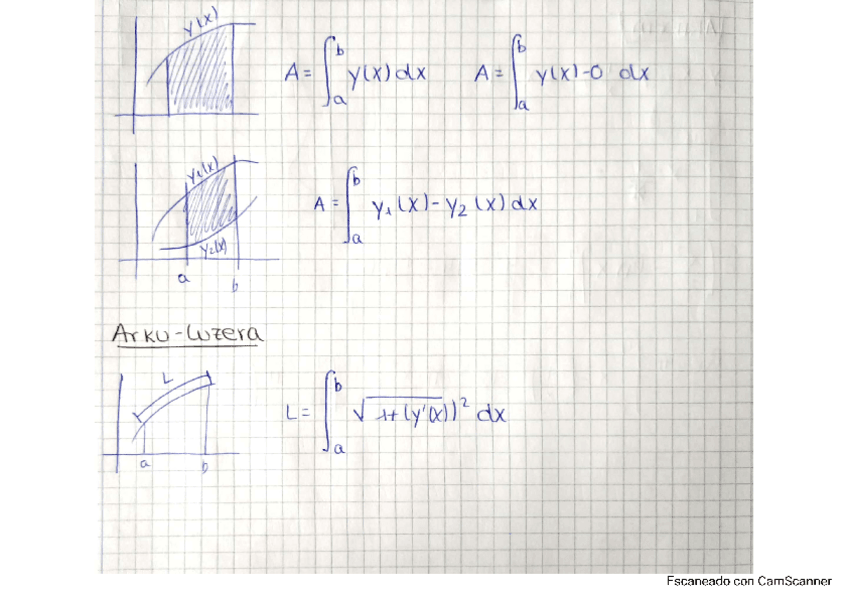 y(x)
A = ∫_a^b y(x) dx    A = ∫_a^b y(x)-0 dx
y₁(x)
A = ∫_a^b y₁(x) - y₂(x) dx
y₂(x)
a b
Arku-luzera
L
L = ∫_a^b √1+(y'(x))² dx
a b
Escaneado con CamScanner